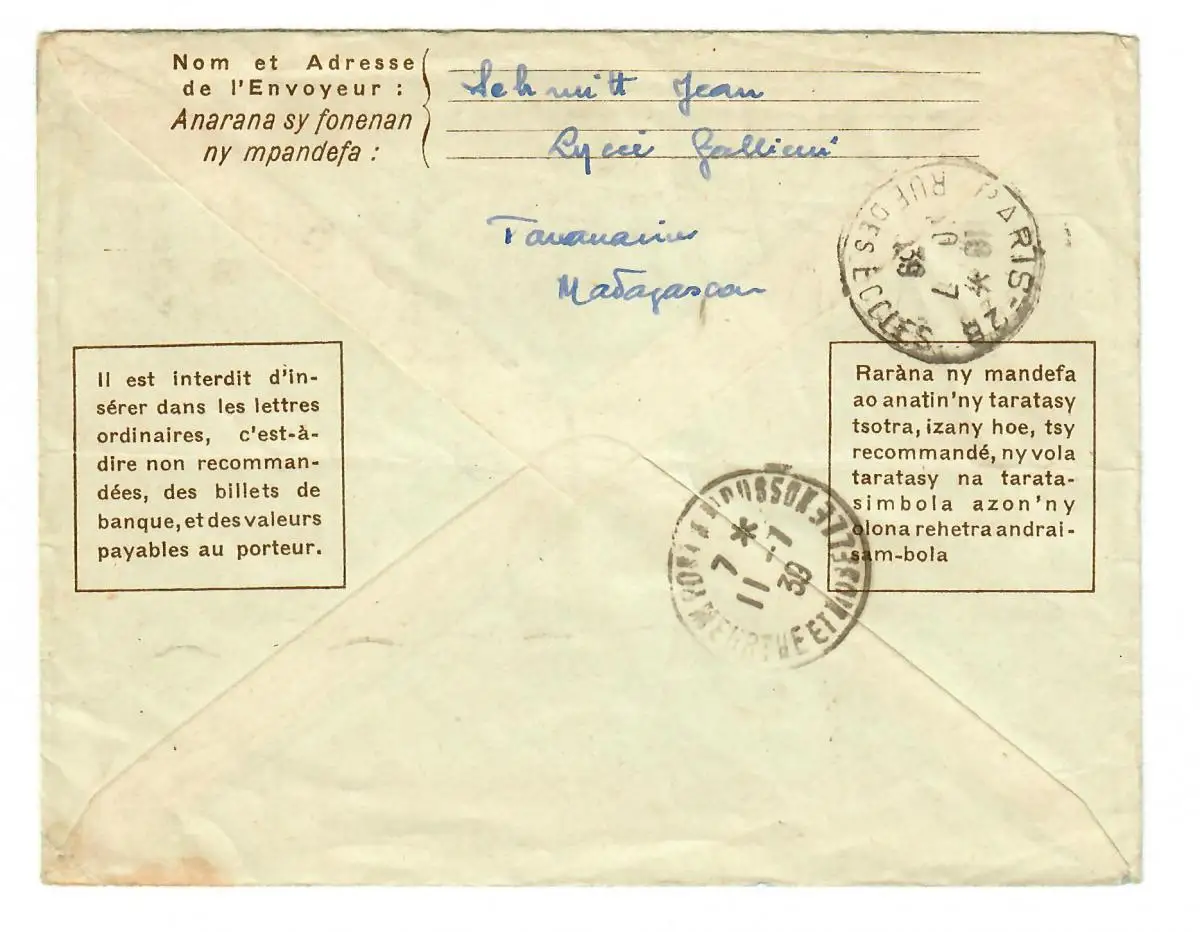 Nom et Adresse
de l'Envoyeur :
Anarana sy fonenan
ny mpandefa :
Schmitt Jean
Lycée Gallieni
Tananarive
Madagascar
PARIS-28
RUE DES ECOLES
18 *
10 7
39
Il est interdit d'in-
sérer dans les lettres
ordinaires, c'est-à-
dire non recomman-
dées, des billets de
banque, et des valeurs
payables au porteur.
Raràna ny mandefa
ao anatin'ny taratasy
tsotra, izany hoe, tsy
recommandé, ny vola
taratasy na tarata-
simbola azon'ny
olona rehetra andrai-
sam-bola
PONT A MOUSSON
MEURTHE ET MOSELLE
7 *
11 -7
39